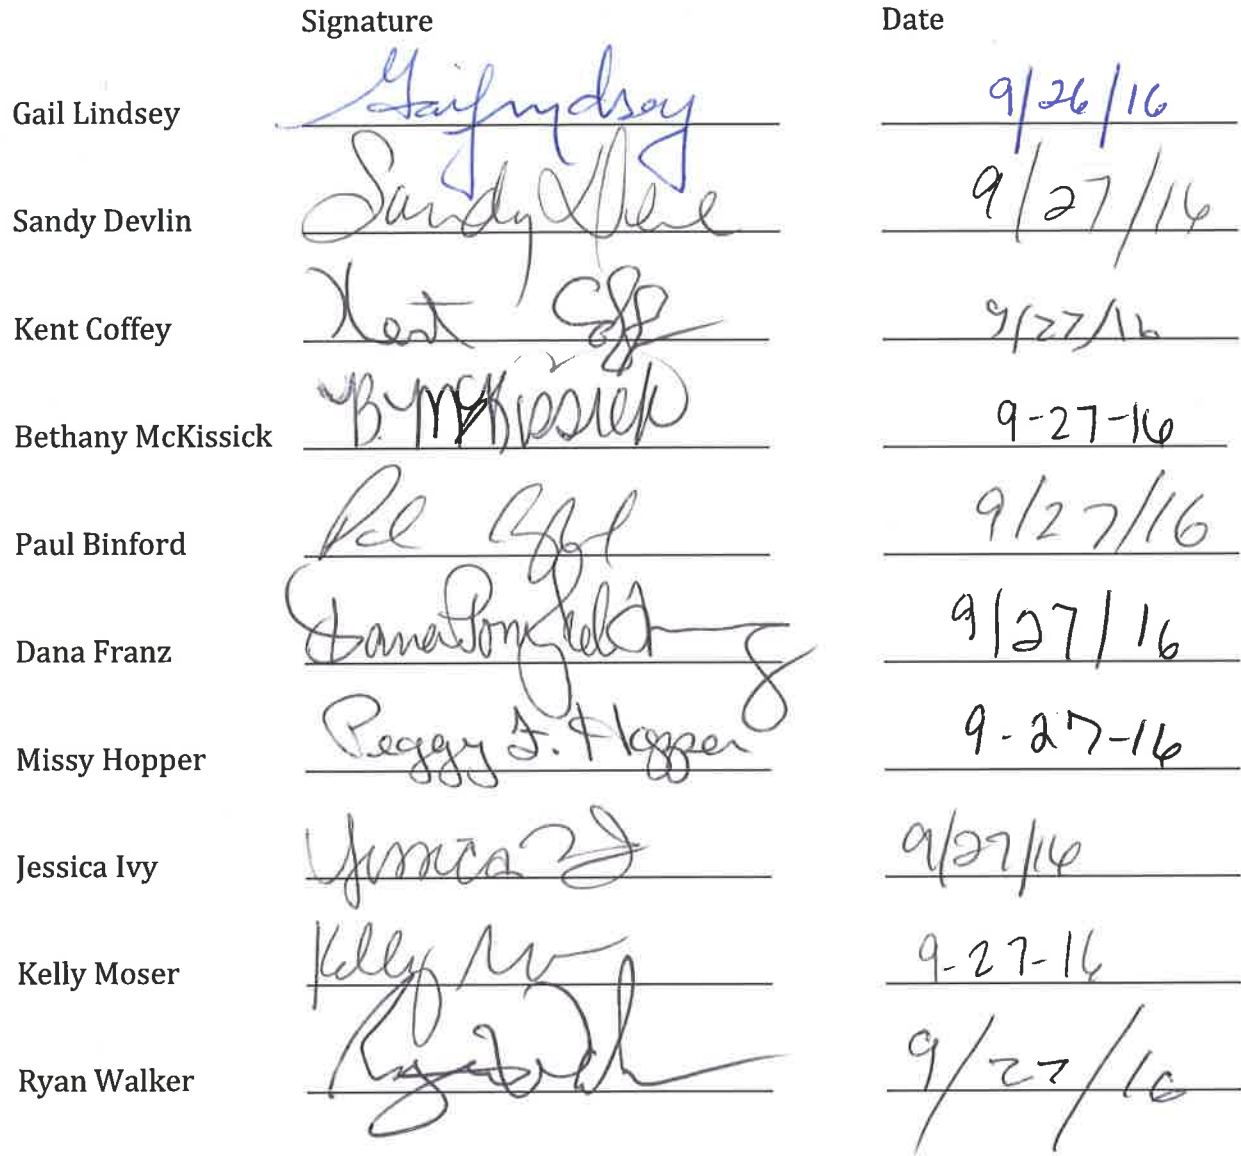 Signature Date
Gail Lindsey Gail Lyndsey 9/26/16
Sandy Devlin Sandy 9/27/16
Kent Coffey Kent Coff 9/27/16
Bethany McKissick B. McKissick 9-27-16
Paul Binford 9/27/16
Dana Franz Dana 9/27/16
Missy Hopper Peggy F. Hopper 9-27-16
Jessica Ivy Jessica 9/27/16
Kelly Moser Kelly 9-27-16
Ryan Walker Ryan 9/27/16